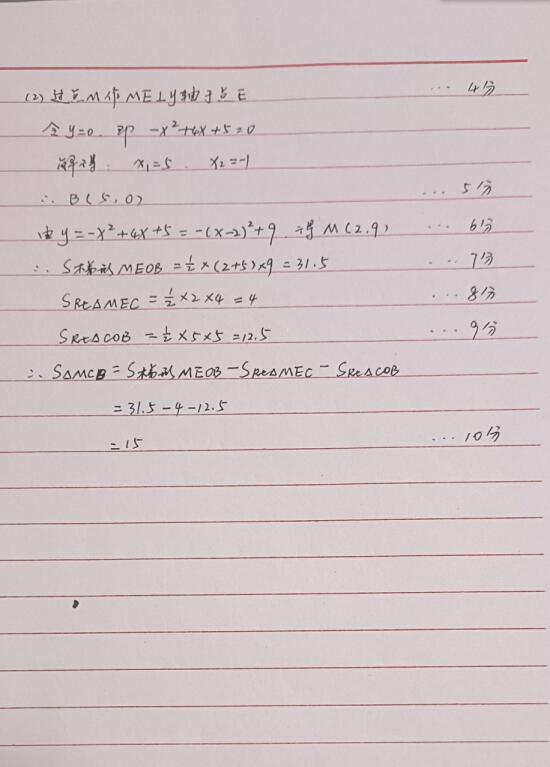 (2) 过点M作ME⊥y轴于点E ... 4分
令y=0 即 -x²+4x+5=0
解得: x₁=5 x₂=-1
∴ B(5,0) ... 5分
由y=-x²+4x+5=-(x-2)²+9 得M(2,9) ... 6分
∴ S梯形MEOB=½×(2+5)×9=31.5 ... 7分
SRt△MEC=½×2×4=4 ... 8分
SRt△COB=½×5×5=12.5 ... 9分
∴ S△MCB=S梯形MEOB-SRt△MEC-SRt△COB
=31.5-4-12.5
=15 ... 10分